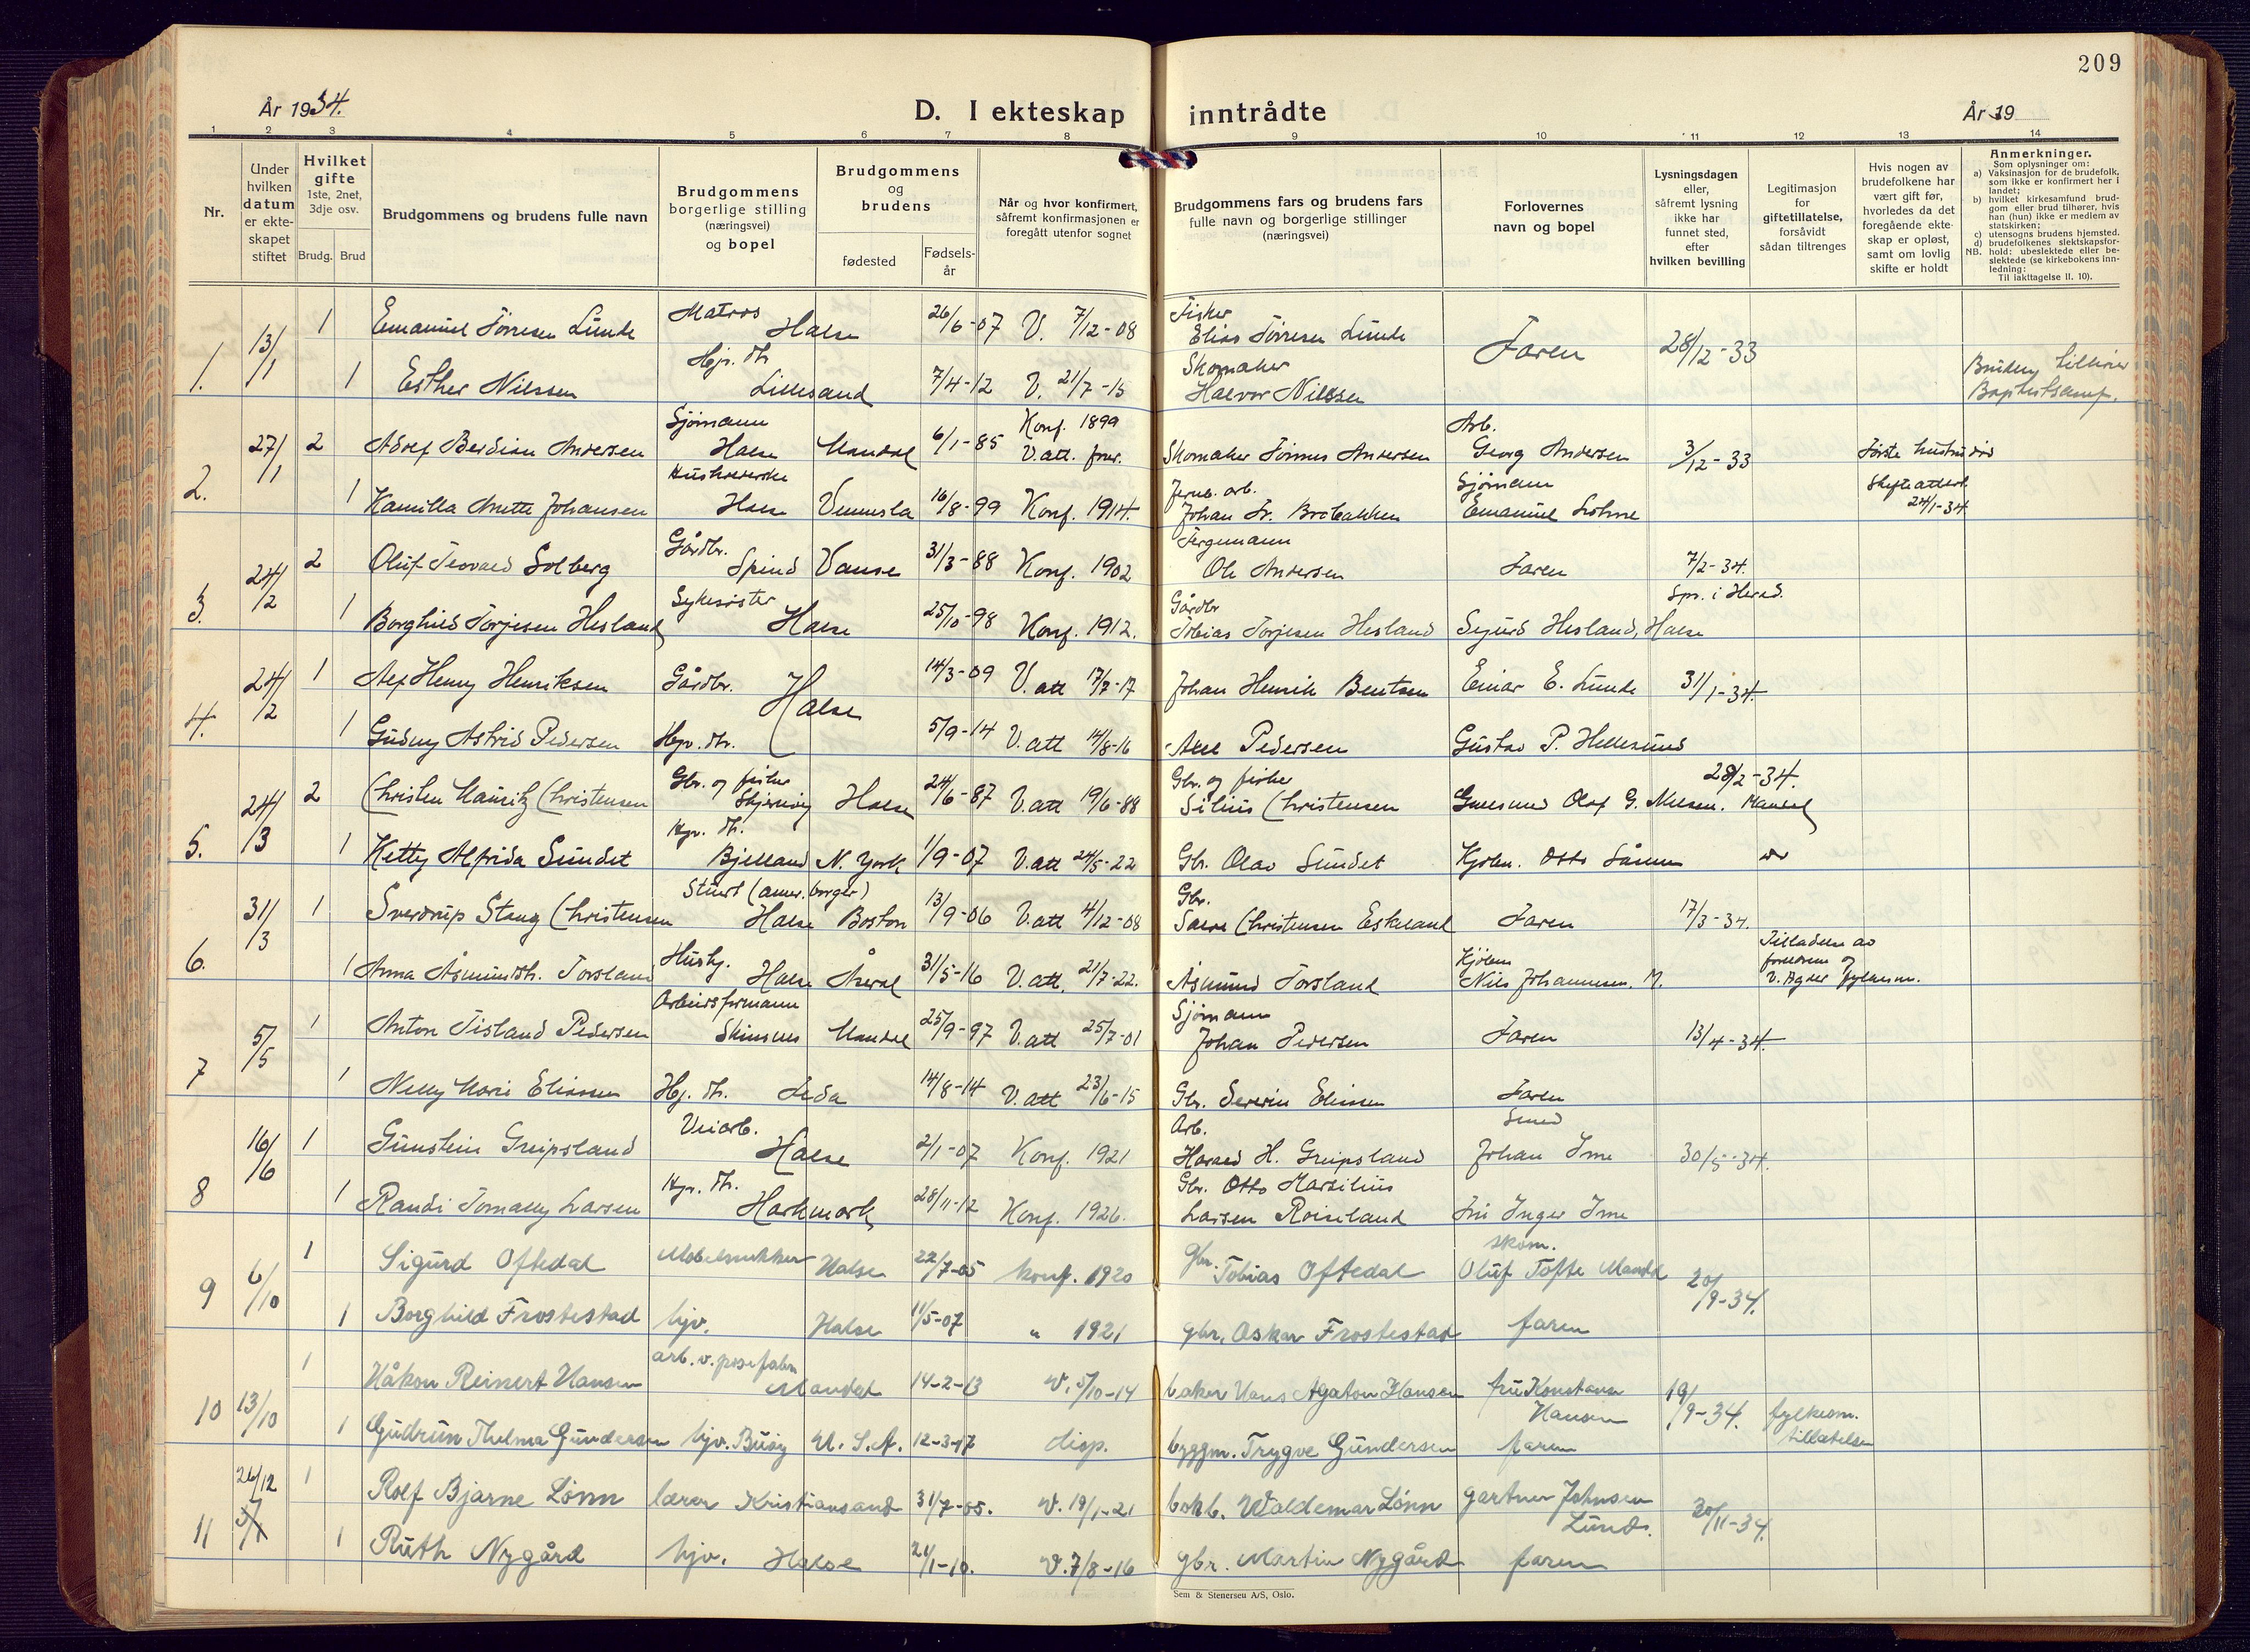 209
År 1934.
D. I ekteskap inntrådte
År 19
1 2 3 4 5 6 7 8 9 10 11 12 13 14
Nr.
Under hvilken datum er ekteskapet stiftet
Hvilket gifte
1ste, 2net, 3dje osv.
Brudg. Brud
Brudgommens og brudens fulle navn
Brudgommens borgerlige stilling (næringsvei) og bopel
Brudgommens og brudens
fødested
Fødsels-år
Når og hvor konfirmert, såfremt konfirmasjonen er foregått utenfor sognet
Brudgommens fars og brudens fars fulle navn og borgerlige stillinger (næringsvei)
Forlovernes navn og bopel
Lysningsdagen eller, såfremt lysning ikke har funnet sted, efter hvilken bevilling
Legitimasjon for giftetillatelse, forsåvidt sådan tiltrenges
Hvis nogen av brudefolkene har vært gift før, hvorledes da det foregående ekteskap er opløst, samt om lovlig skifte er holdt
Anmerkninger.
Som oplysninger om:
a) Vaksinasjon for de brudefolk, som ikke er konfirmert her i landet;
b) hvilket kirkesamfund brudgom eller brud tilhører, hvis han (hun) ikke er medlem av statskirken;
c) utensogns brudens hjemsted.
d) brudefolkenes slektskapsforhold: ubeslektede eller beslektede (se kirkebokens innledning:
NB. Til iakttagelse II. 10).
1. 13/1 1 Emanuel Tørresen Lunde Matros Halse 26/6-07 V. 7/12-08 Fisker Elias Tørresen Lunde Faren 28/12-33
1 Esther Nilssen Hjv. dtr. Lillesand 7/4-12 V. 21/7-15 Skomaker Halvor Nilssen
2. 27/1 2 Adolf Berdian Andersen Sjømann Halse Mandal 6/1-85 Konf. 1899 V.att. Skomaker Andersen Arb. Georg Andersen 3/12-33 Første hustru død
1 Kamilla Anette Johansen Halse Vennesla 16/8-99 Konf. 1914. Jernb. arb. Johan Fr. Brobakken Sjømann Emanuel Lohne 24/1-34
3. 24/2 2 Oluf Teovald Solberg Gårdbr. Spind Vanse 31/3-88 Konf. 1902 Ole Andersen Faren 7/2-34. Spr. i Herad.
1 Borghild Torjesen Hesland Sykesøster Halse 25/10-98 Konf. 1912. Gårdbr Tobias Torjesen Hesland Sigurd Hesland, Halse
4. 24/2 1 Alf Henry Henriksen Gårdbr. Halse 14/3-09 V. att 17/7-17 Johan Henrik Bentsen Einar E. Lunde 31/1-34.
1 Gudny Astrid Pedersen Hjv. dtr. 5/9-14 V. att 14/8-16 Axel Pedersen Gustav P. Hellesund
5. 24/3 2 Christen Mauritz Christensen Gbr. og fisker Halse 24/6-87 V. att 19/6-88 Gbr. og fisker Silius Christensen Olaf G. Nilsen. Mandal 28/2-34.
1 Hetty Alfrida Sundet Hjv. dtr. Bjelland N. York 1/9-07 V. att 24/5-22 Gbr. Olav Sundet Kjøbm. Otto
6. 31/3 1 Sverdrup Stang Christensen Stuert (amer. borger) Halse Boston 13/9-06 V. att 4/12-08 Gbr. Christensen Eskeland Faren 17/3-34.
1 Anna Åsmundsdt. Torsland Hushj. Halse Åseral 31/5-16 V. att. 21/7-22. Åsmund Torsland Kjøbm Nils Johannesen. M. Tilladelse av foreldrene og V. Agder fylkesm.
7 5/5 1 Anton Tisland Pedersen Arbeidsformann Skinsnes Mandal 25/9-97 V. att 25/7-01 Sjømann Johan Pedersen Faren 13/4-34.
1 Nelly Marie Eliassen Hj. dtr. 14/8-14 V. att 23/6-15 Gbr. Severin Eliassen Faren
8 16/6 1 Gunstein Greipsland Veiarb. Halse 2/1-07 Konf. 1921 Arb. Harald H. Greipsland Smed Johan Ime 30/5-34.
1 Randi Tomally Larsen Hjv. dtr. Harkmark 28/11-12 Konf. 1926. Gbr. Otto Marsilius Larsen Roiseland Fru Inger Ime
9 6/10 1 Sigurd Oftedal Møbelsnekker Halse 22/7-05 konf. 1920 gbr. Tobias Oftedal skom. Oluf Tofte Mandal 20/9-34.
1 Borghild Frostestad hjv. Halse 11/5-07 " 1921 gbr. Oskar Frostestad faren
10 13/10 1 Håkon Reinert Hansen arb. v. posefabr. Mandal 14-2-13 V. 5/10-14 baker Hans Agaton Hansen fru Konstanse Hansen 19/9-34. fylkesm. tillatelse
1 Gudrun Thelma Gundersen hjv. Buøy U. S. A. 12-3-17 disp. byggm. Trygve Gundersen faren
11 26/12 1 Rolf Bjarne Lönn lærer Kristiansand 31/7-05. V. 19/1-21 bokb. Waldemar Lönn gartner Johnsen Lund. 30/11-34.
1 Ruth Nygård hjv. Halse 21/1-10. V. 7/8-16 gbr. Martin Nygård faren
Sem & Stenersen A/S, Oslo.